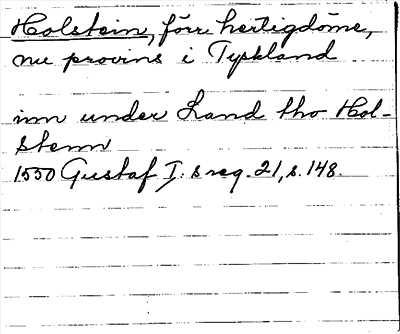 Holstein, förr hertigdöme,
nu provins i Tyskland
inn under Land tho Hol-
stenn
1550 Gustaf I:s reg. 21, s. 148.